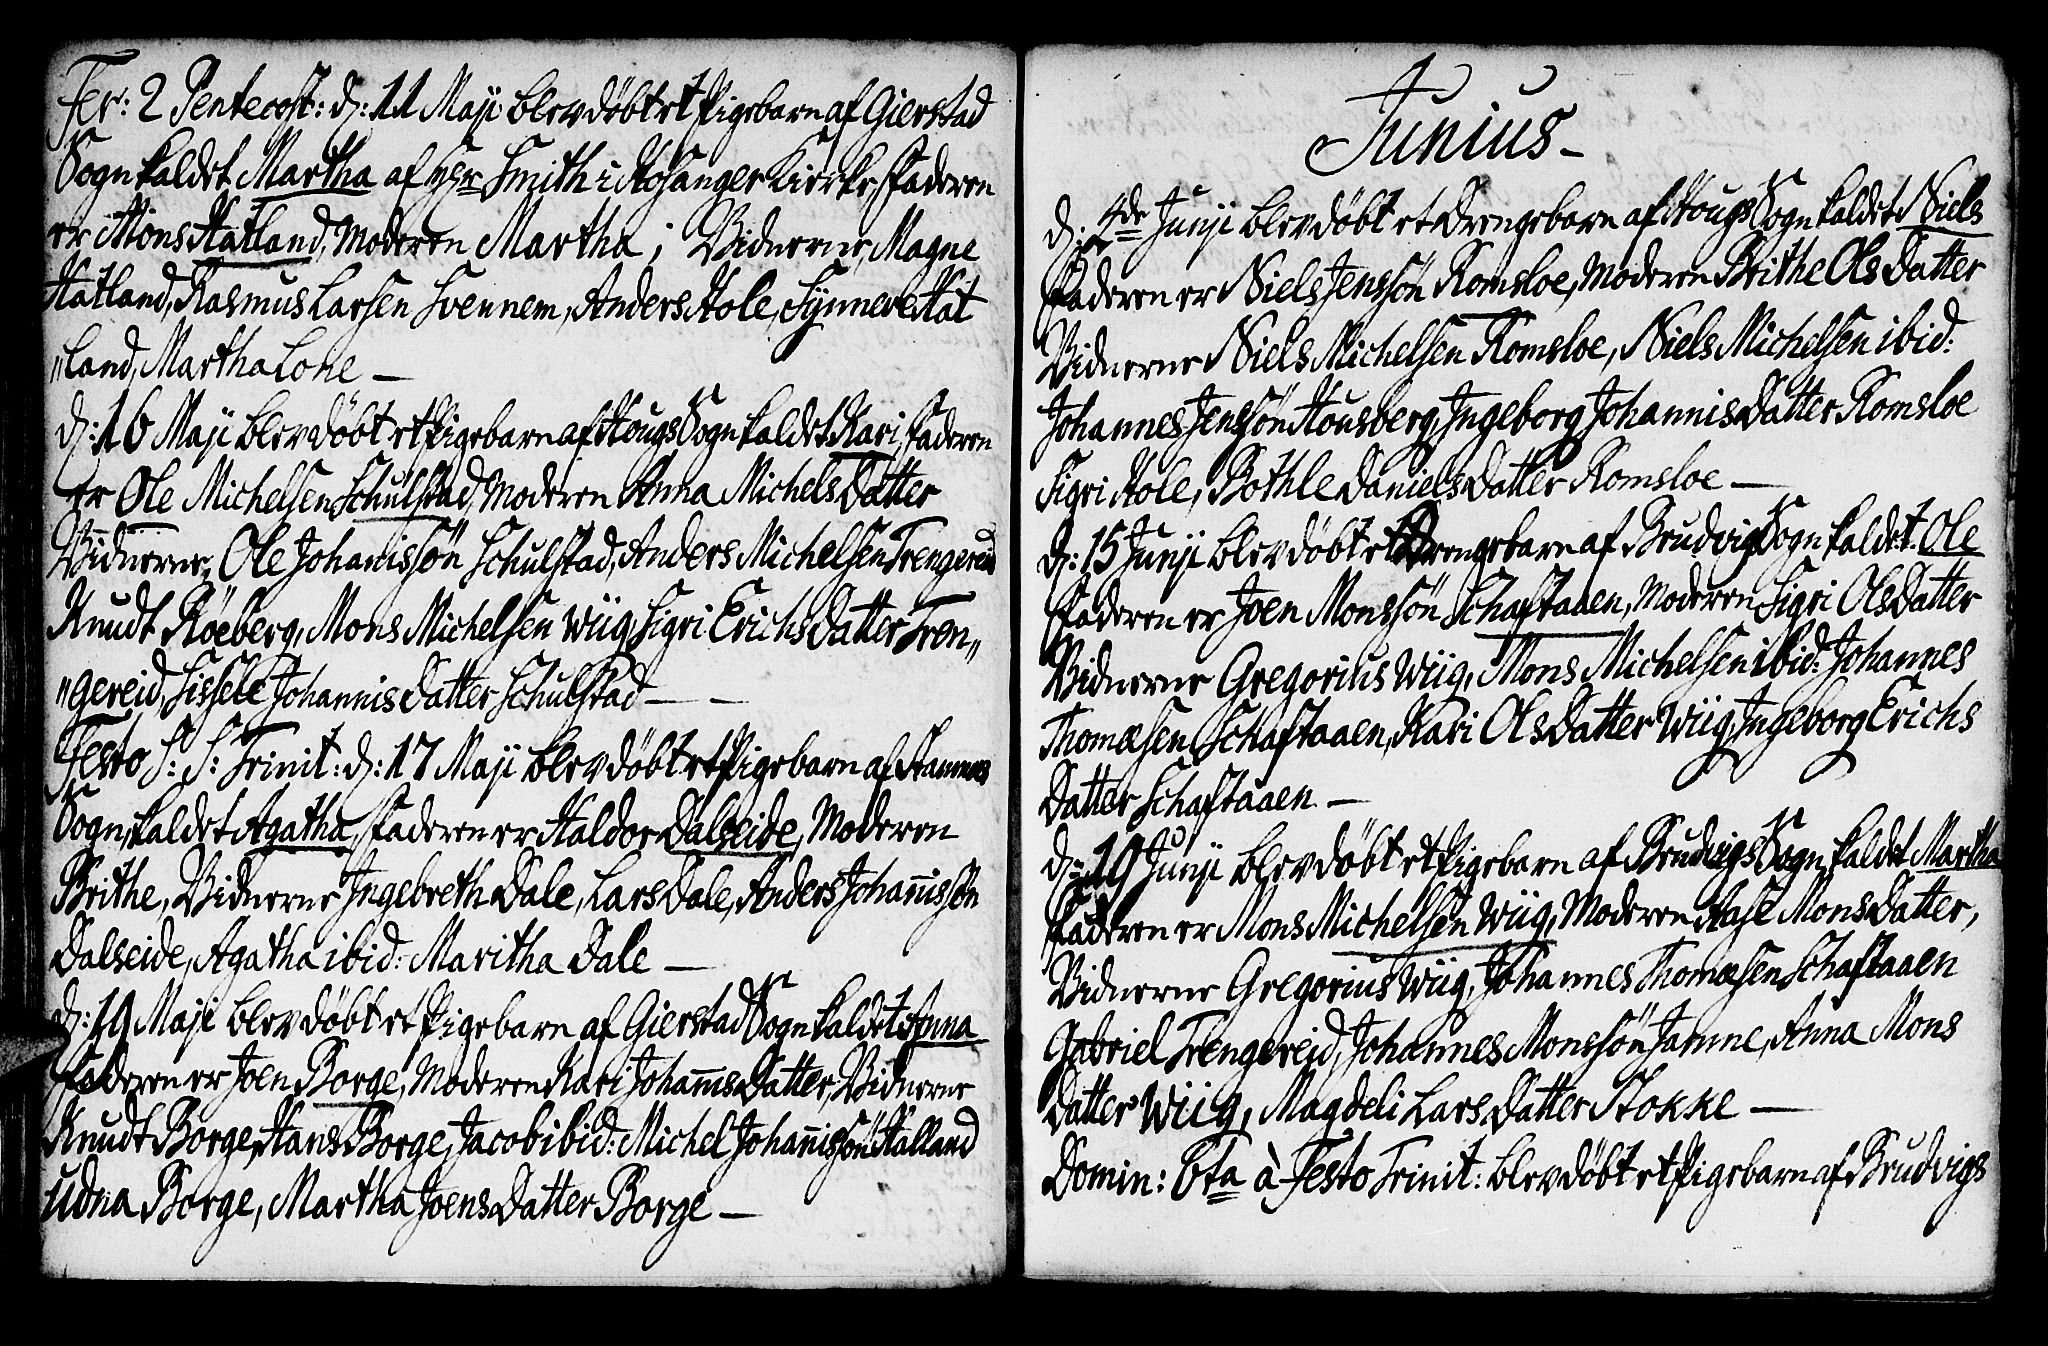 Fer: 2 Pentecost: d: 11 Maji blev döbt et Pigebarn af Gierstad
Sogn kaldet Martha af Hr Smith i Hosanger Kirke, Faderen
er Mons Hatland, Moderen Martha; Vidnerne, Magne
Hatland, Rasmus Larsen Svennem, Anders Hole, Synneve Hat
„land, Martha Lone —
d: 16 Maji blev döbt et Pigebarn af Hougs Sogn kaldet Kari, Faderen
er Ole Michelsen Schulstad, Moderen Anna Michels Datter
Vidnerne, Ole Johanissön Schulstad, Anders Michelsen Trengereid
Knudt Röeberg, Mons Michelsen Wiig, Sigri Erichs Datter Tren„
„gereid, Sissele Johannis Datter Schulstad — —
Festo S: S: Trinit: d: 17 Maji blev döbt et Pigebarn af Hammers
Sogn, kaldet Agatha, Faderen er Haldor Dalseide, Moderen
Brithe, Vidnerne Ingebreth Dale, Lars Dale, Anders Johanissön
Dalseide, Agatha ibid: Maritha Dale —
d: 19 Maji blev döbt et Pigebarn af Gierstad Sogn kaldet Anna
Faderen er Joen Borge, Moderen Kari Johanis Datter, Vidnerne
Knudt Borge, Hans Borge, Jacob ibid: Michel Johanissön Hatland
Udna Borge, Martha Joens Datter Borge —
Junius —
d: 4de Junji blev döbt et Drengebarn af Hougs Sogn kaldet Niels
Faderen er Niels Jenssön Romsloe, Moderen Brithe Ols Datter
Vidnerne Niels Michelsen Romsloe, Niels Michelsen ibid:
Johannes Jenssön Housberg, Ingeborg Johannis Datter Romsloe
Sigri Hole, Bothle Daniels Datter Romsloe —
d: 15 Junji blev döbt et Drengebarn af Brudvigs Sogn kaldet Ole
Faderen er Joen Monssön Schaftaaen, Moderen Sigri Ols Datter
Vidnerne Gregorius Wiig, Mons Michelsen ibid: Johannes
Thomæsen Schaftaaen, Kari Ols Datter Wiig, Ingeborg Erichs
Datter Schaftaaen —
d: 19 Junji blev döbt et Pigebarn af Brudvigs Sogn kaldet Martha
Faderen er Mons Michelsen Wiig, Moderen Aase Mons Datter,
Vidnerne Gregorius Wiig, Johannes Thomæsen Schaftaaen
Gabriel Trengereid, Johannes Monssön Jamne, Anna Mons
Datter Wiig, Magdeli Lars Datter Stokke —
Domin: 6ta à Festo Trinit: blev döbt et Pigebarn af Brudvigs